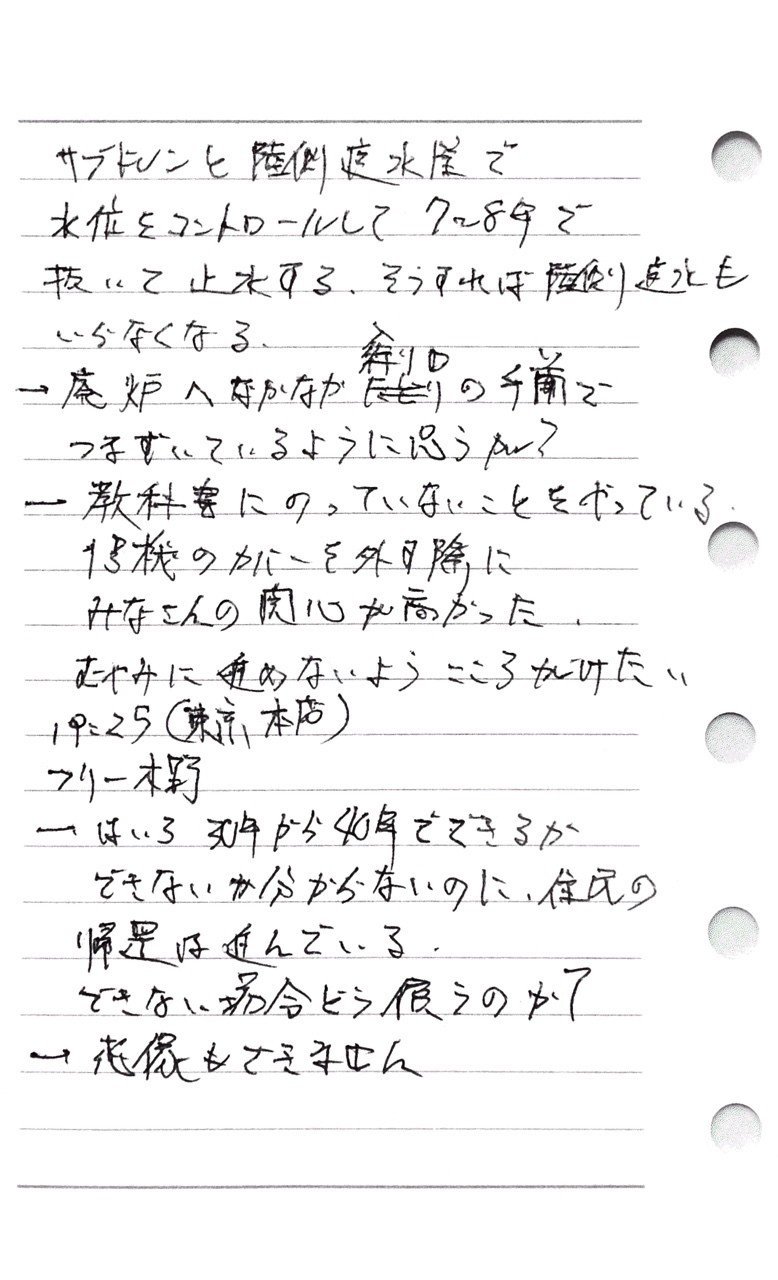 サブドレンと陸側遮水壁で
水位をコントロールして 7~8年で
抜いて止水する、そうすれば陸側遮水も
いらなくなる、
→ 廃炉へなかなか入り口の手前で
つまずいているように思うが?
→ 教科書にのっていないことをやっている、
1号機のカバーを外す際に
みなさんの関心が高かった、
むやみに進めないようこころがけたい
19:25(東京、本店)
フリー木野
→ はいろ 30年から40年でできるか
できないか分からないのに、住民の
帰還は進んでいる、
できない場合どう償うのか?
→ 想像もできません